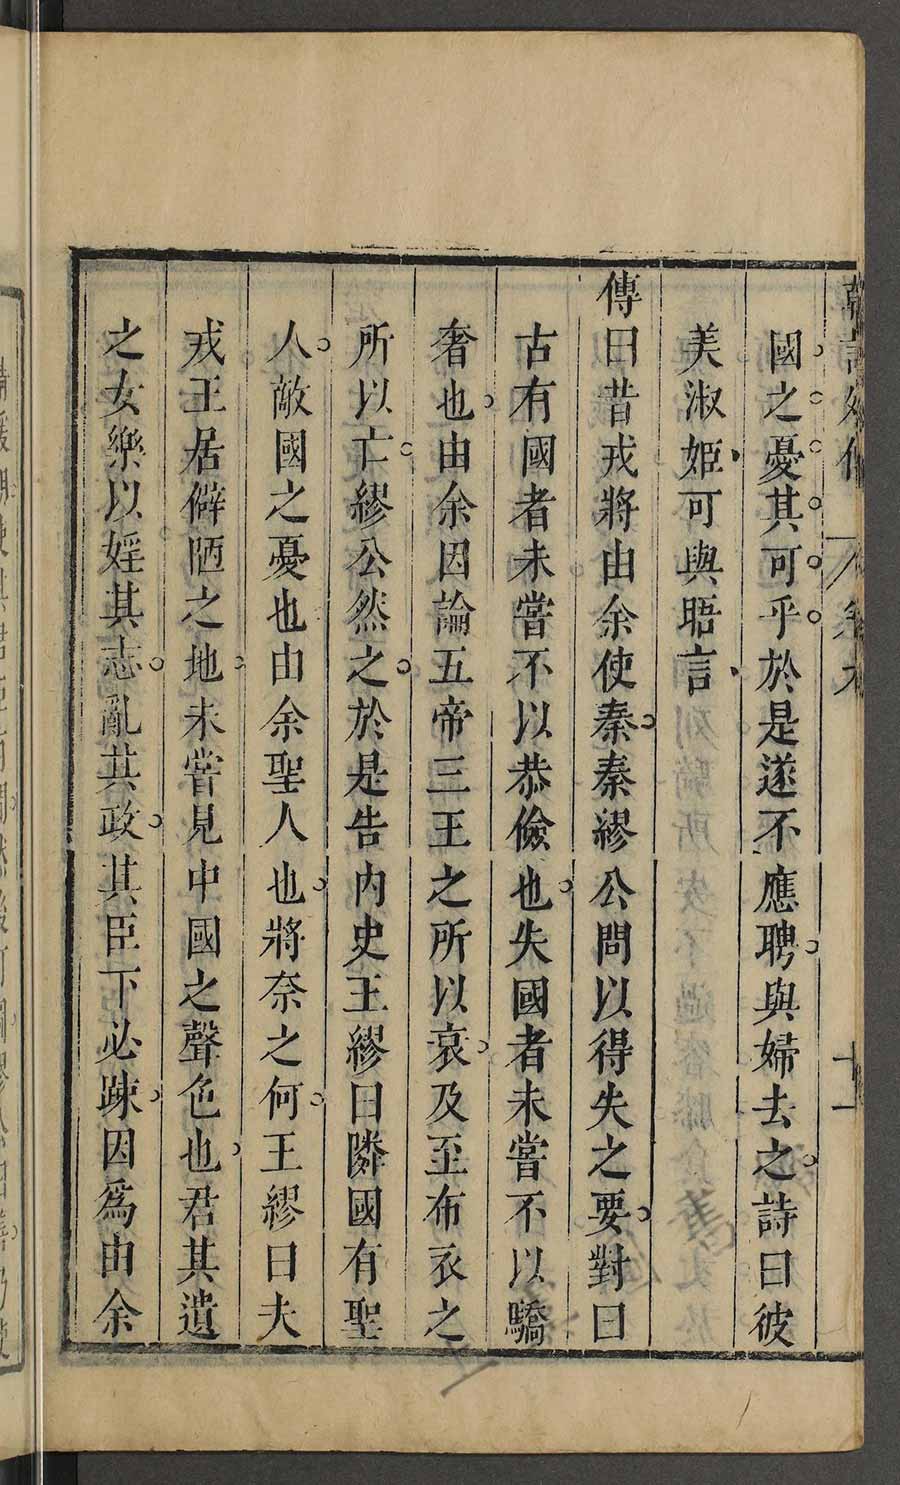 韓詩外傳 卷九 十一
國之憂其可乎於是遂不應聘與婦去之詩曰彼
美淑姬可與晤言
傳曰昔戎將由余使秦秦繆公問以得失之要對曰
古有國者未嘗不以恭儉也失國者未嘗不以驕
奢也由余因論五帝三王之所以衰及至布衣之
所以亡繆公然之於是告內史王繆曰隣國有聖
人敵國之憂也由余聖人也將奈之何王繆曰夫
戎王居僻陋之地未嘗見中國之聲色也君其遺
之女樂以婬其志亂其政其臣下必踈因爲由余